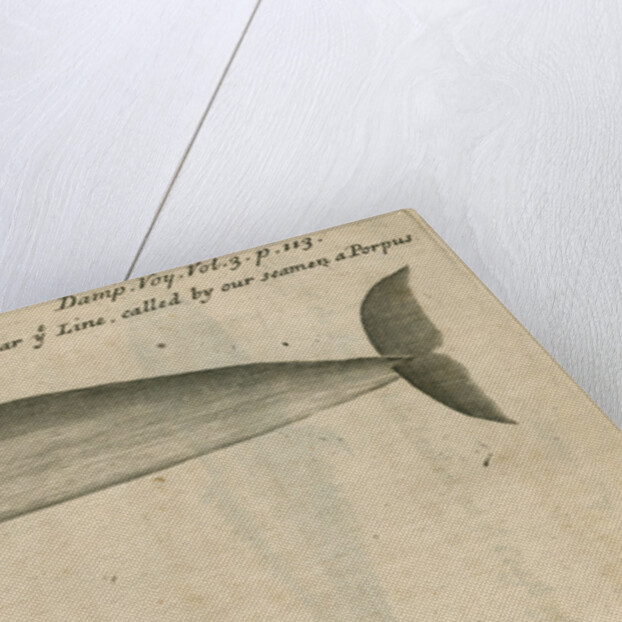 Damp. Voy. Vol. 3. p. 113.
ar yͤ Line. called by our seamen a Porpus